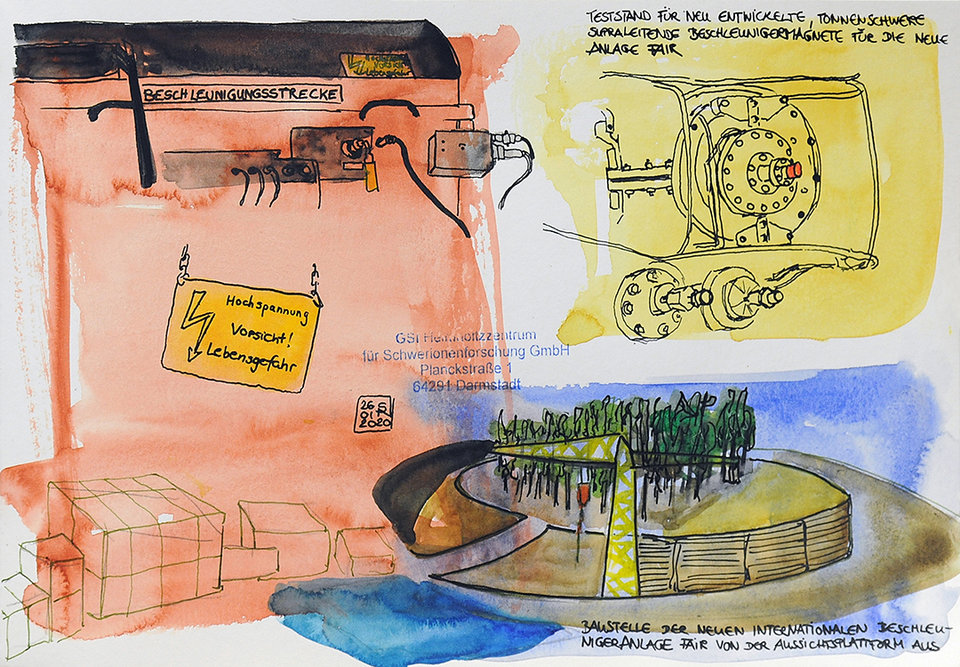 TESTSTAND FÜR NEU ENTWICKELTE, TONNENSCHWERE
SUPRALEITENDE BESCHLEUNIGERMAGNETE FÜR DIE NEUE
ANLAGE FAIR
BESCHLEUNIGUNGSSTRECKE
Hochspannung
Vorsicht!
Lebensgefahr
GSI Helmholtzzentrum
für Schwerionenforschung GmbH
Planckstraße 1
64291 Darmstadt
26
01
2020
BAUSTELLE DER NEUEN INTERNATIONALEN BESCHLEU-
NIGERANLAGE FAIR VON DER AUSSICHTSPLATTFORM AUS